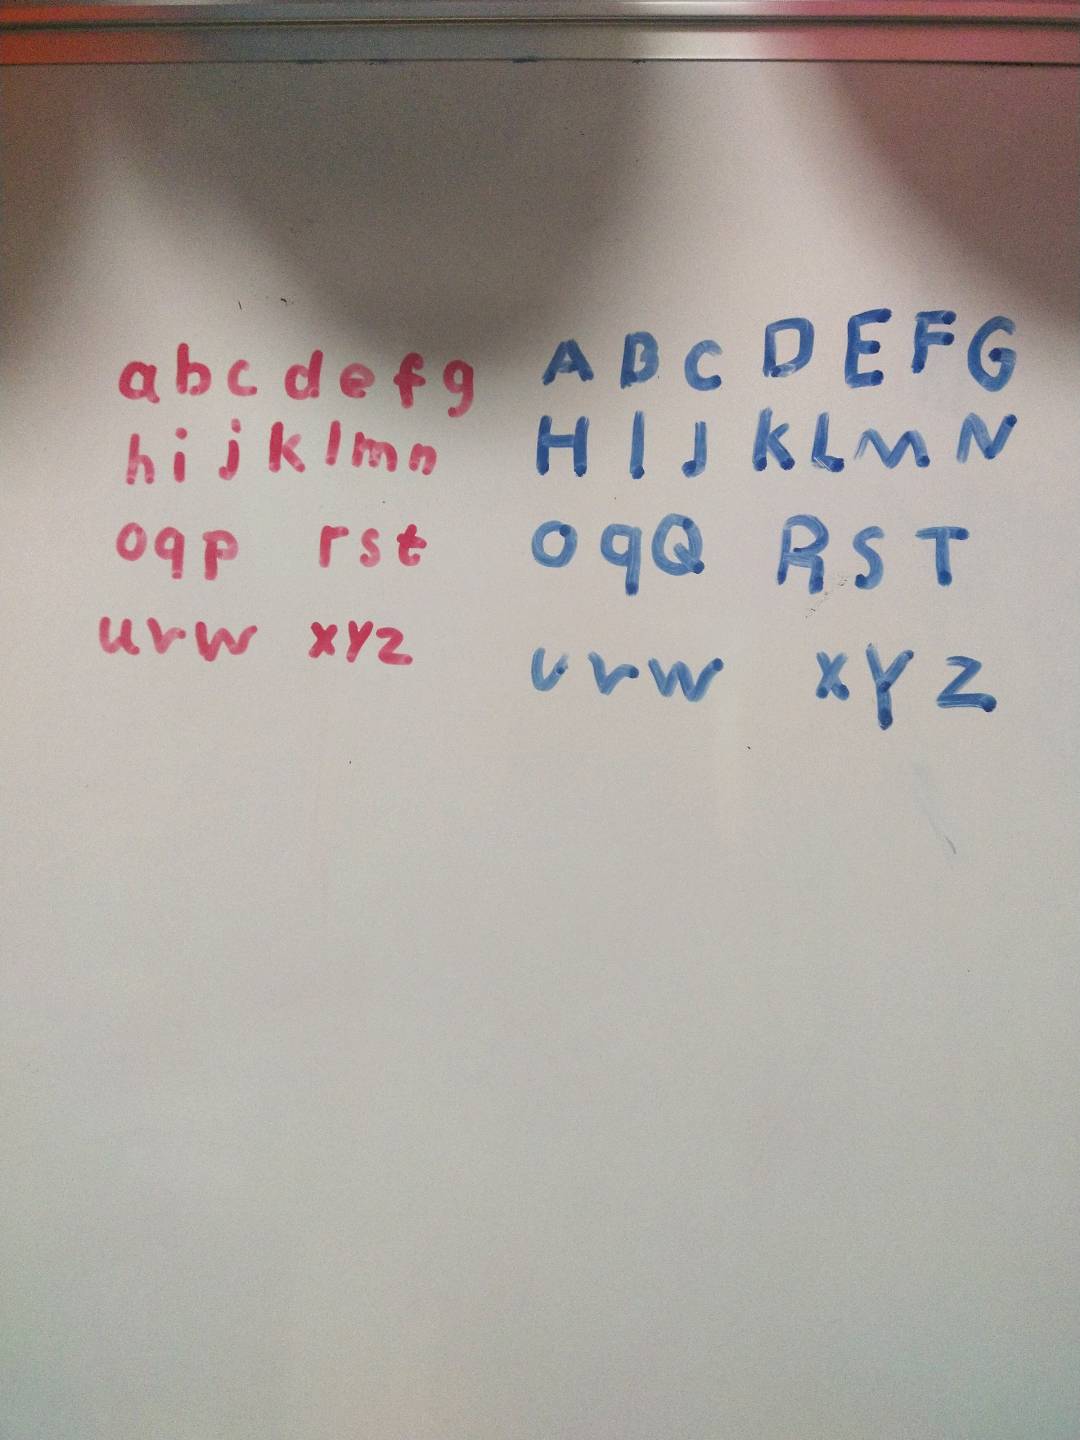 abc defg
hijklmn
oqp rst
uvw xyz
ABC DEFG
HIJKLMN
OqQ RST
UVW XYZ